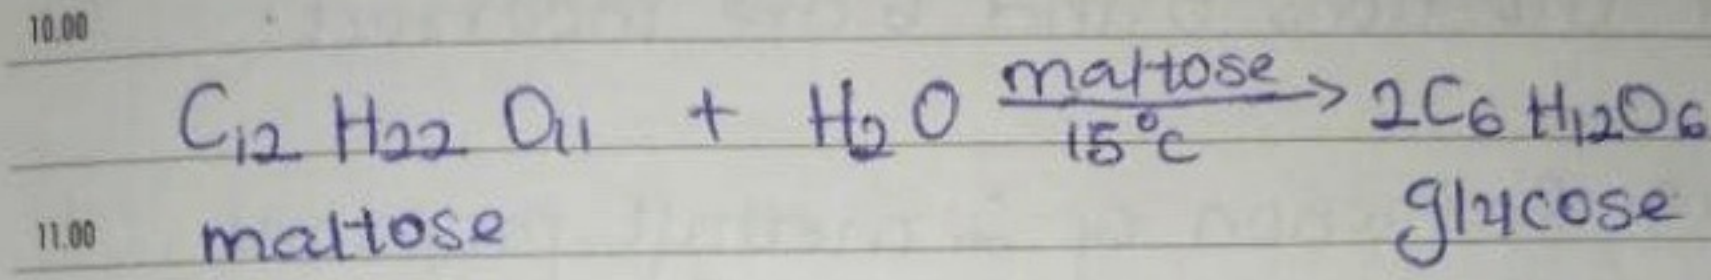 10.00
C₁₂ H₂₂ O₁₁ + H₂O maltose / 15°C → 2C₆ H₁₂O₆
11.00 maltose glycose